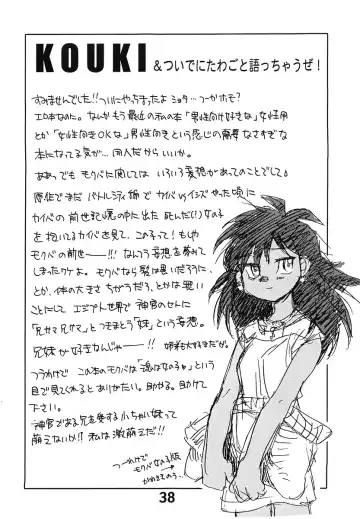 KOUKI &ついでにたわごと語っちゃうぜ!
すみませんでした!!ついにやっちまったよショタ つーかホモ?
エロ本なのに。なんかもう最近の私の本「男性向け好きな」女性用
とか「女性向きOKな」男性向きという感じの
本になってる気が…同人だからいいか。
ああっでも モクバに関しては いろいろ妄想があってのことでして
原作でまだ バトルシティ編で カイバVSイシズ やった頃に
カイバの前世記憶の中に出た 死んだ(?)女の子
を抱いてるカイバを見て、この子って!もしや
モクバの前世ー!!! なんつう妄想を夢みて
しまったワケよ。モクバなら髪は黒いだろうに、
とか、体の大きさ ちがうだろう、とかは悪い
ことにして エジプト世界で 神官のせんに
「兄サマ兄サマ」と つきまとう「妹」という妄想。
兄妹が好きなんじゃー!!
つうわけで この本のモクバは「魂は女の子」という
目で見てくれると ありがたい。助かる。助けて
下さい。
神官である兄を愛する小ちゃい妹って
萌えないか!?私は激萌えだ!!
つーわけで
モクバ女の子版
38